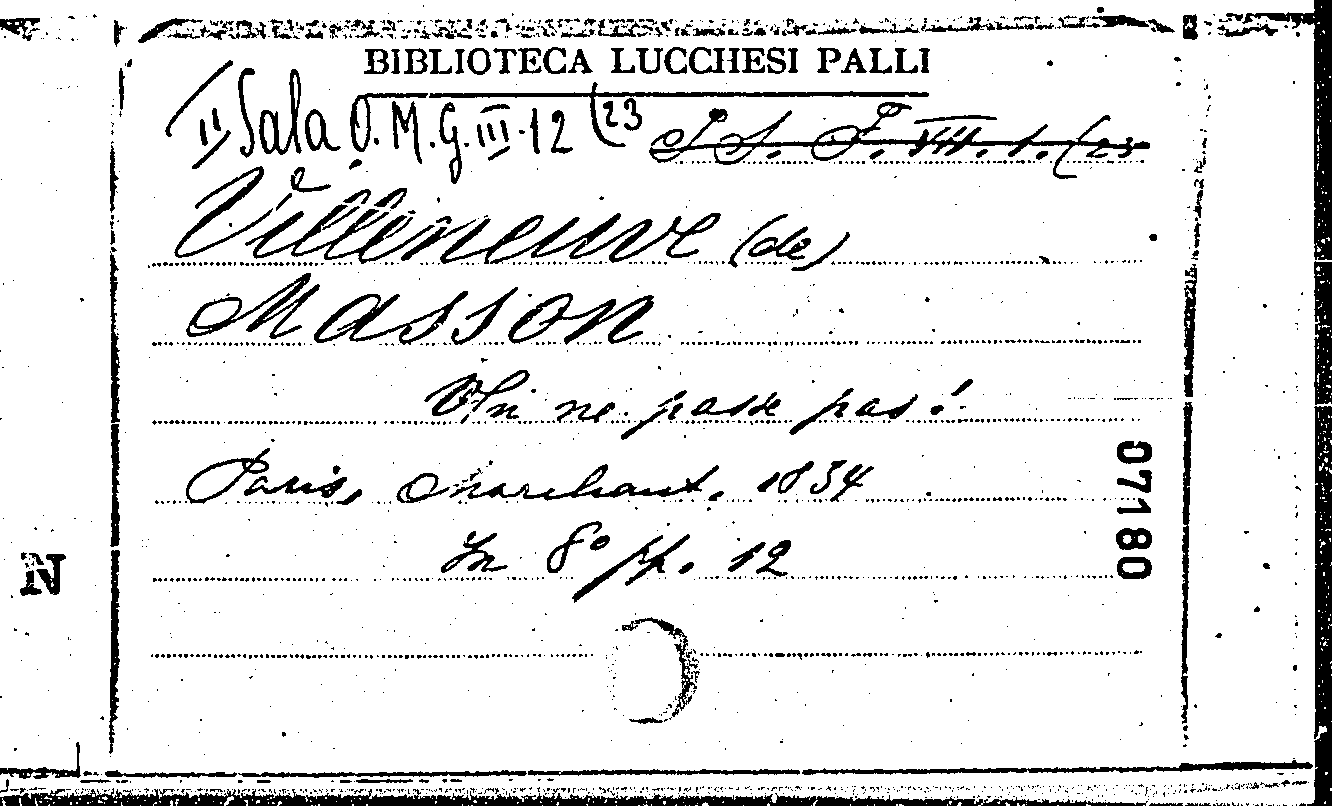 BIBLIOTECA LUCCHESI PALLI
II Sala O. M. G. III. 12 (23 S. S. F. VII. 1. (23
Villeneuve (de)
Masson
On ne passe pas!
Paris, Marchant. 1834
In 8° pp. 12
07180
N